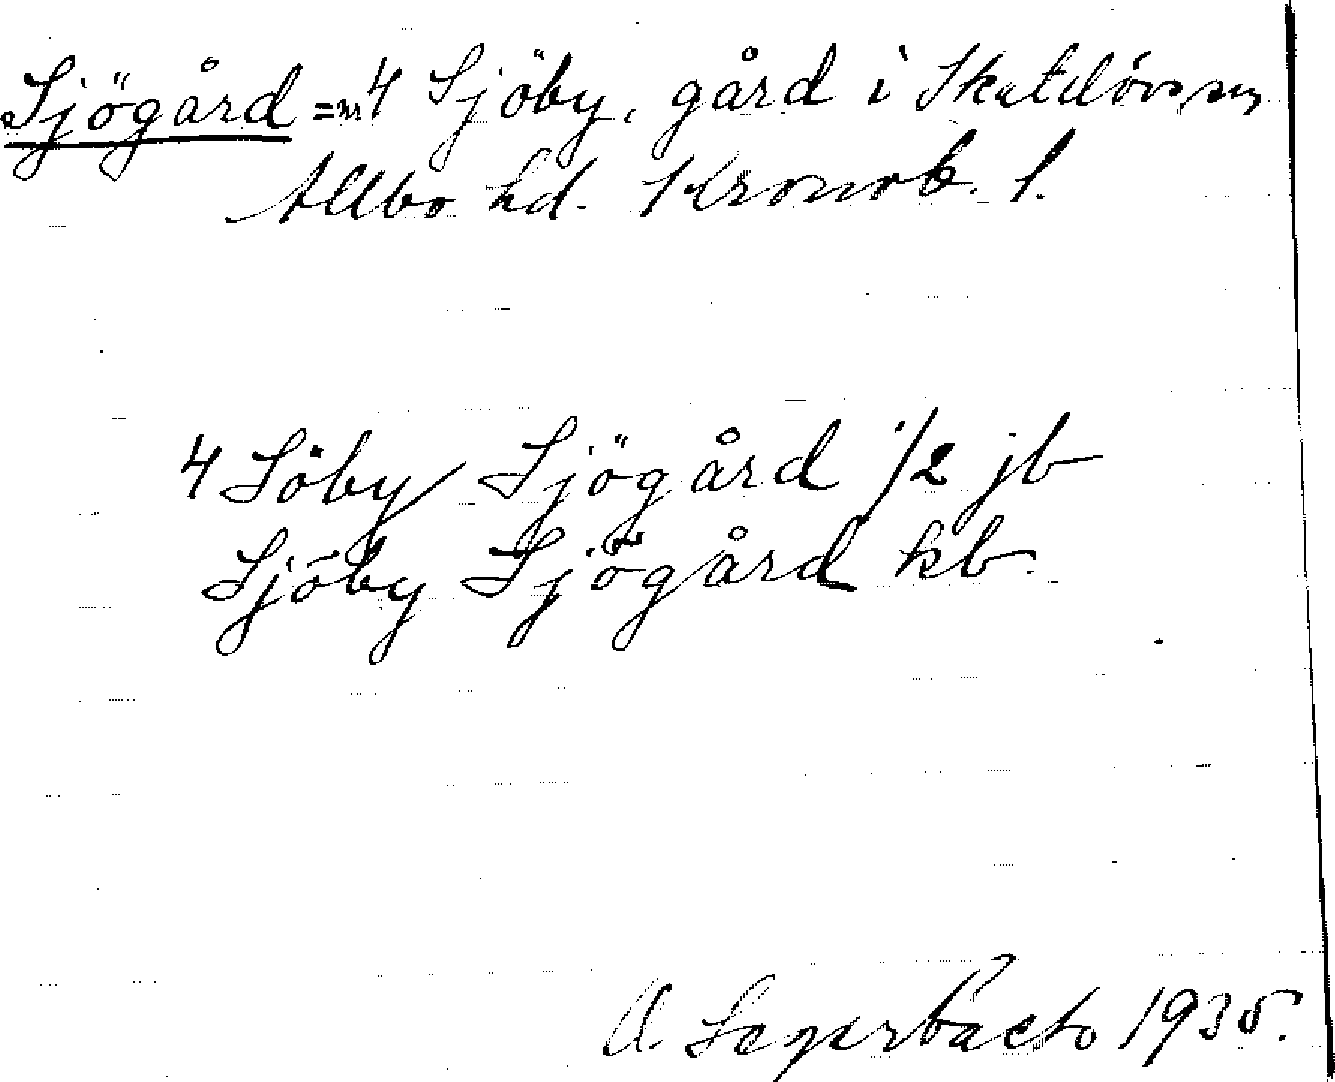 Sjögård = nr 4 Sjöby, gård i Skatelövs sn
Allbo hd. Kronob. l.
4 Söby Sjögård 1/2 jb
Sjöby Sjögård kb
A. 1935.